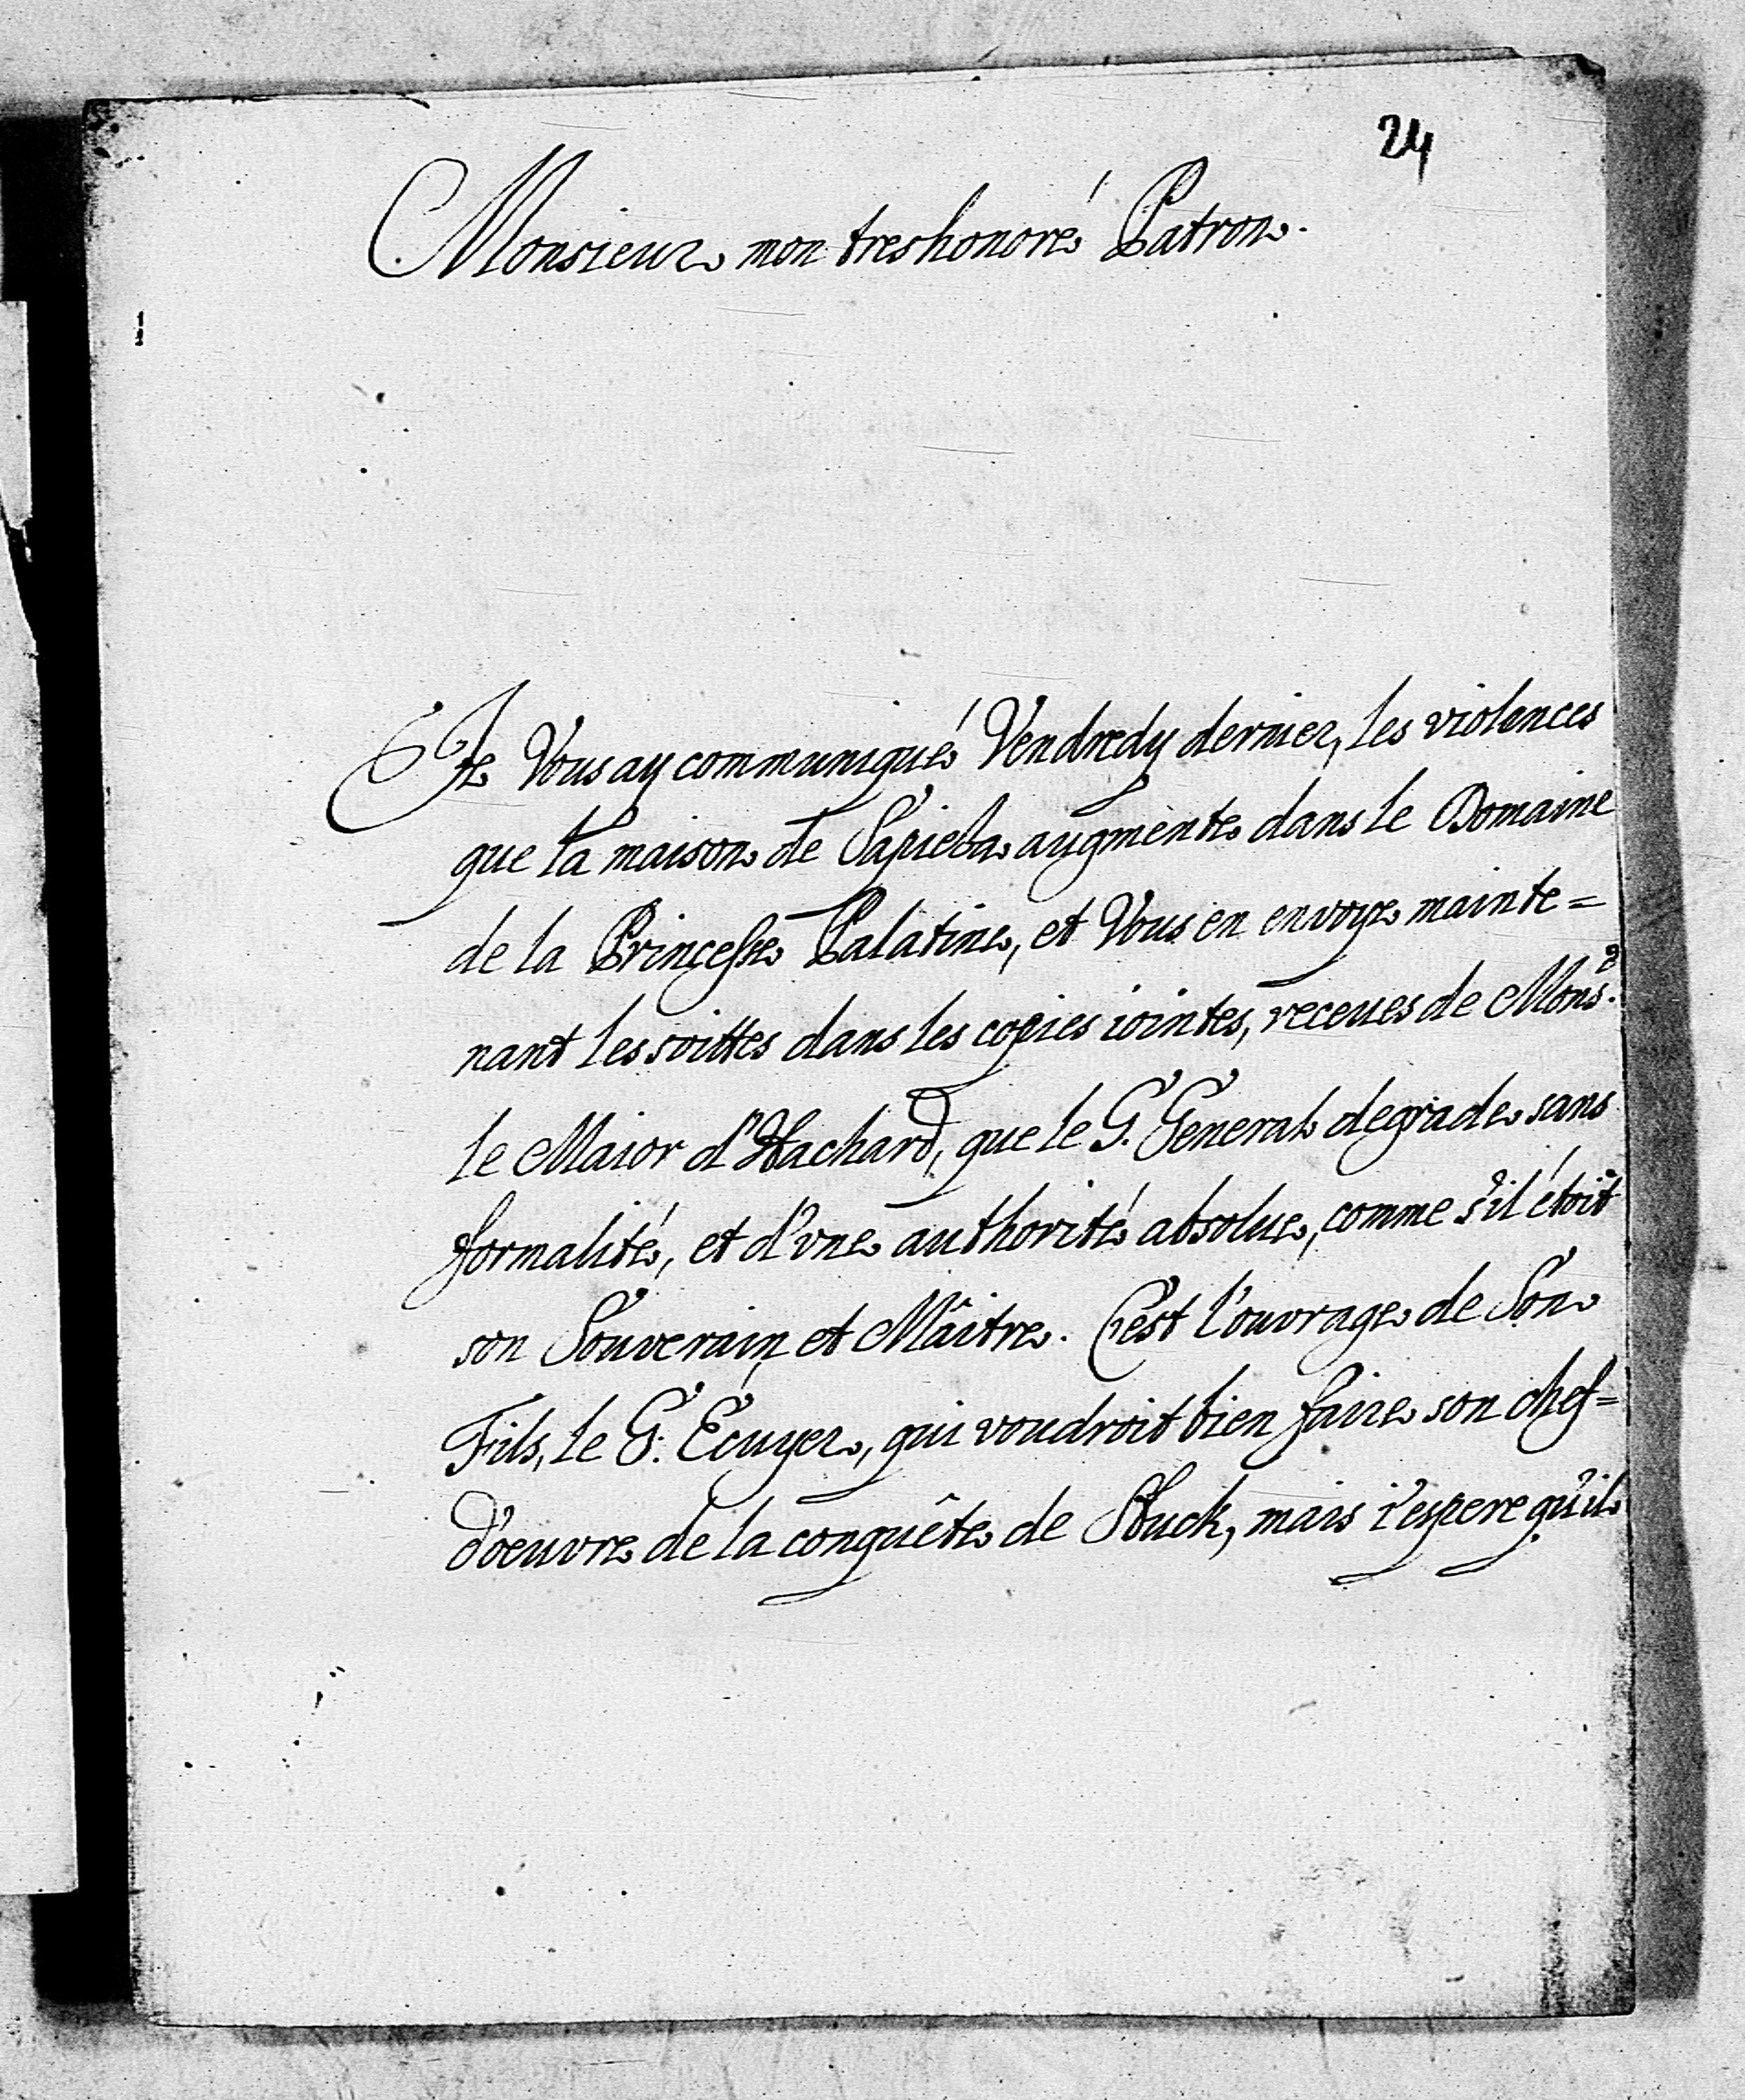 24
Monsieur mon treshonoré Patron.
Je Vous ay communiqué Vendredy dernier, les violences
que la maison de Sapieha augmente dans le Domaine
de la Princesse Palatine, et Vous en envoye mainte=
nant les suittes dans les copies iointes, receues de Monsr.
le Maior d'Hachard, que le G. General degrade sans
formalité, et d'vne authorité absolue, comme s'il étoit
son Souverain et Mâitre. C'est l'ouvrage de Son
Fils, le G. Ecuyer, qui voudroit bien faire son chef=
d'oeuvre de la conquête de Sluck, mais i'espere qu'il